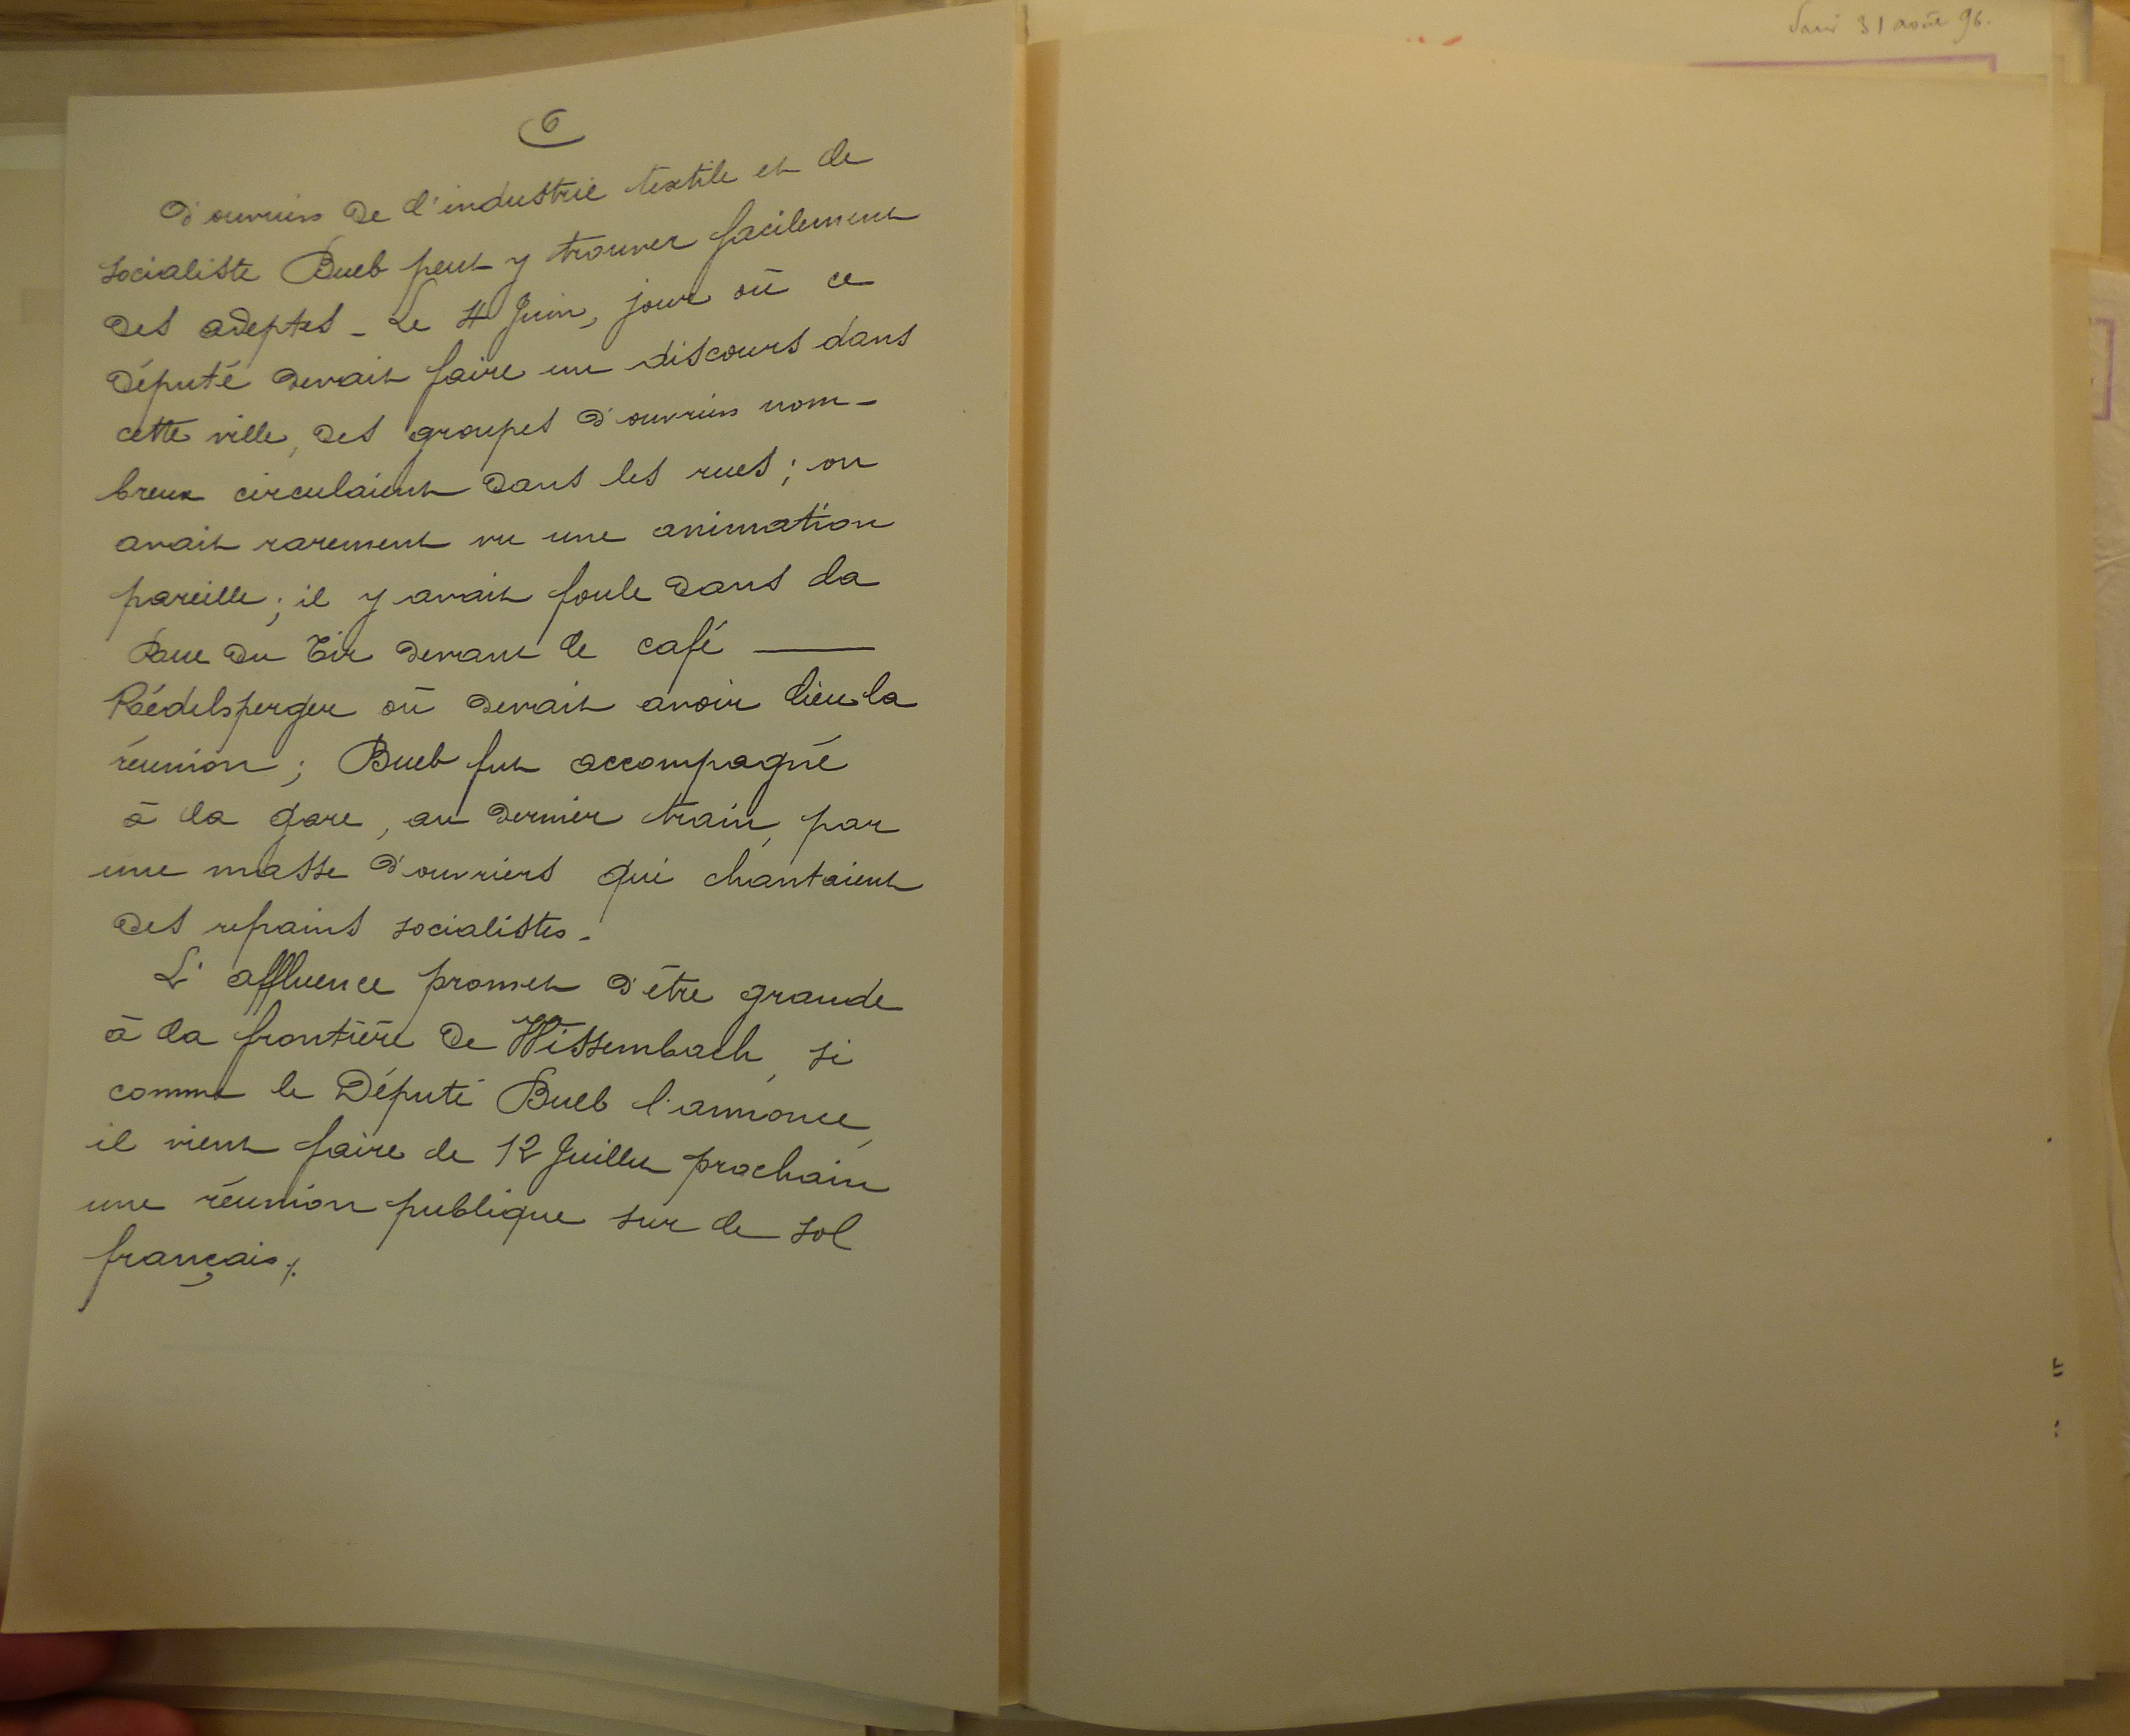 31 août 96.
6
d'ouvriers de l'industrie textile et le
socialiste Bueb peut y trouver facilement
des adeptes - Le 4 Juin, jour où ce
député devait faire un discours dans
cette ville, des groupes d'ouvriers nom-
breux circulaient dans les rues ; on
avait rarement vu une animation
pareille ; il y avait foule dans la
Rue du Tir devant le café ——
Rédelsperger où devait avoir lieu la
réunion ; Bueb fut accompagné
à la gare, au dernier train, par
une masse d'ouvriers qui chantaient
des refrains socialistes -
L'affluence promet d'être grande
à la frontière de Wissembach, si
comme le Député Bueb l'annonce,
il vient faire le 12 Juillet prochain
une réunion publique sur le sol
français ./.